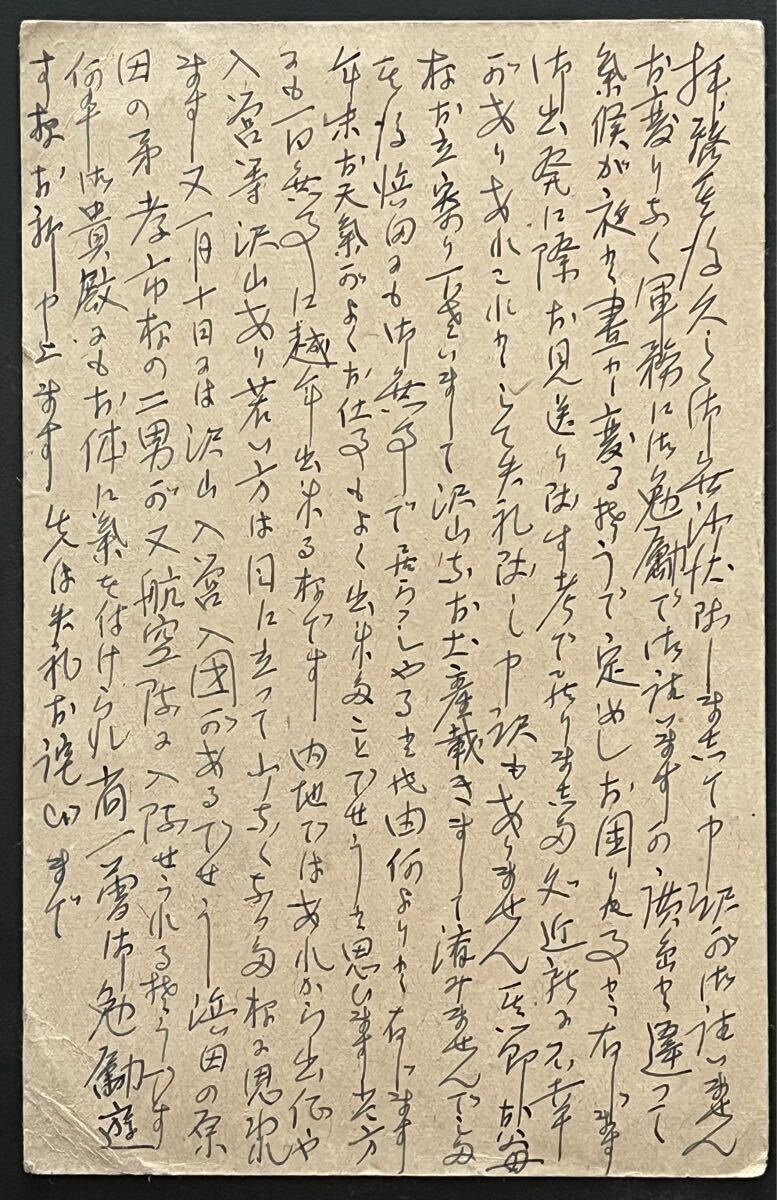 拝啓其後久しく御無沙汰致しまして申訳が御座いません
お変りなく軍務に御勉励で御座いますの 広島と違って
気候が夜と昼か変るそうで定めしお困り及事と存じます
御出発に際お見送り致す考で居りました 近親に不幸
がありあれこれとして失礼致し申訳もありません 其節お
様お立寄り下さいまして沢山なお土産戴きまして済みませんでした
其後浜田にも御無事で居らっしやると 何よりと存じます
年末お天気がよくお仕事もよく出来たことでせうと思います 当方
にも一同無事に越年出来る様です 内地ではあれから出征や
入営等沢山あり若い方は目に立って少なくなった様に思われ
ます 又一月十日には沢山入営入団があるでせう 浜田の原
田の弟孝市様の二男が又航空隊に入隊せられるそうです
何卒御貴殿にもお体に気を付けられ尚一層御勉励遊
す様お祈申上ます 先は失礼お詫びまで